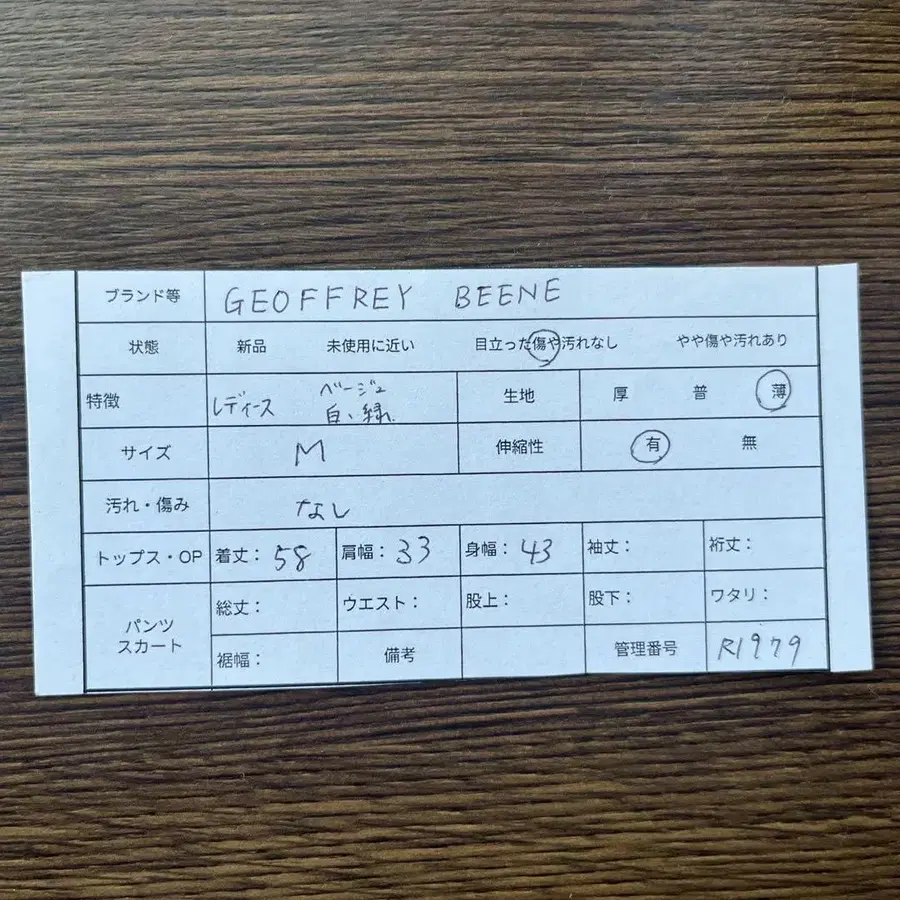 ブランド等 GEOFFREY BEENE
状態 新品 未使用に近い 目立った傷や汚れなし やや傷や汚れあり
特徴 レディース ベージュ 生地 厚 普 薄
白、緑
サイズ M 伸縮性 有 無
汚れ・傷み なし
トップス・OP 着丈: 58 肩幅: 33 身幅: 43 袖丈: 裄丈:
パンツ 総丈: ウエスト: 股上: 股下: ワタリ:
スカート 裾幅: 備考 管理番号 R1979